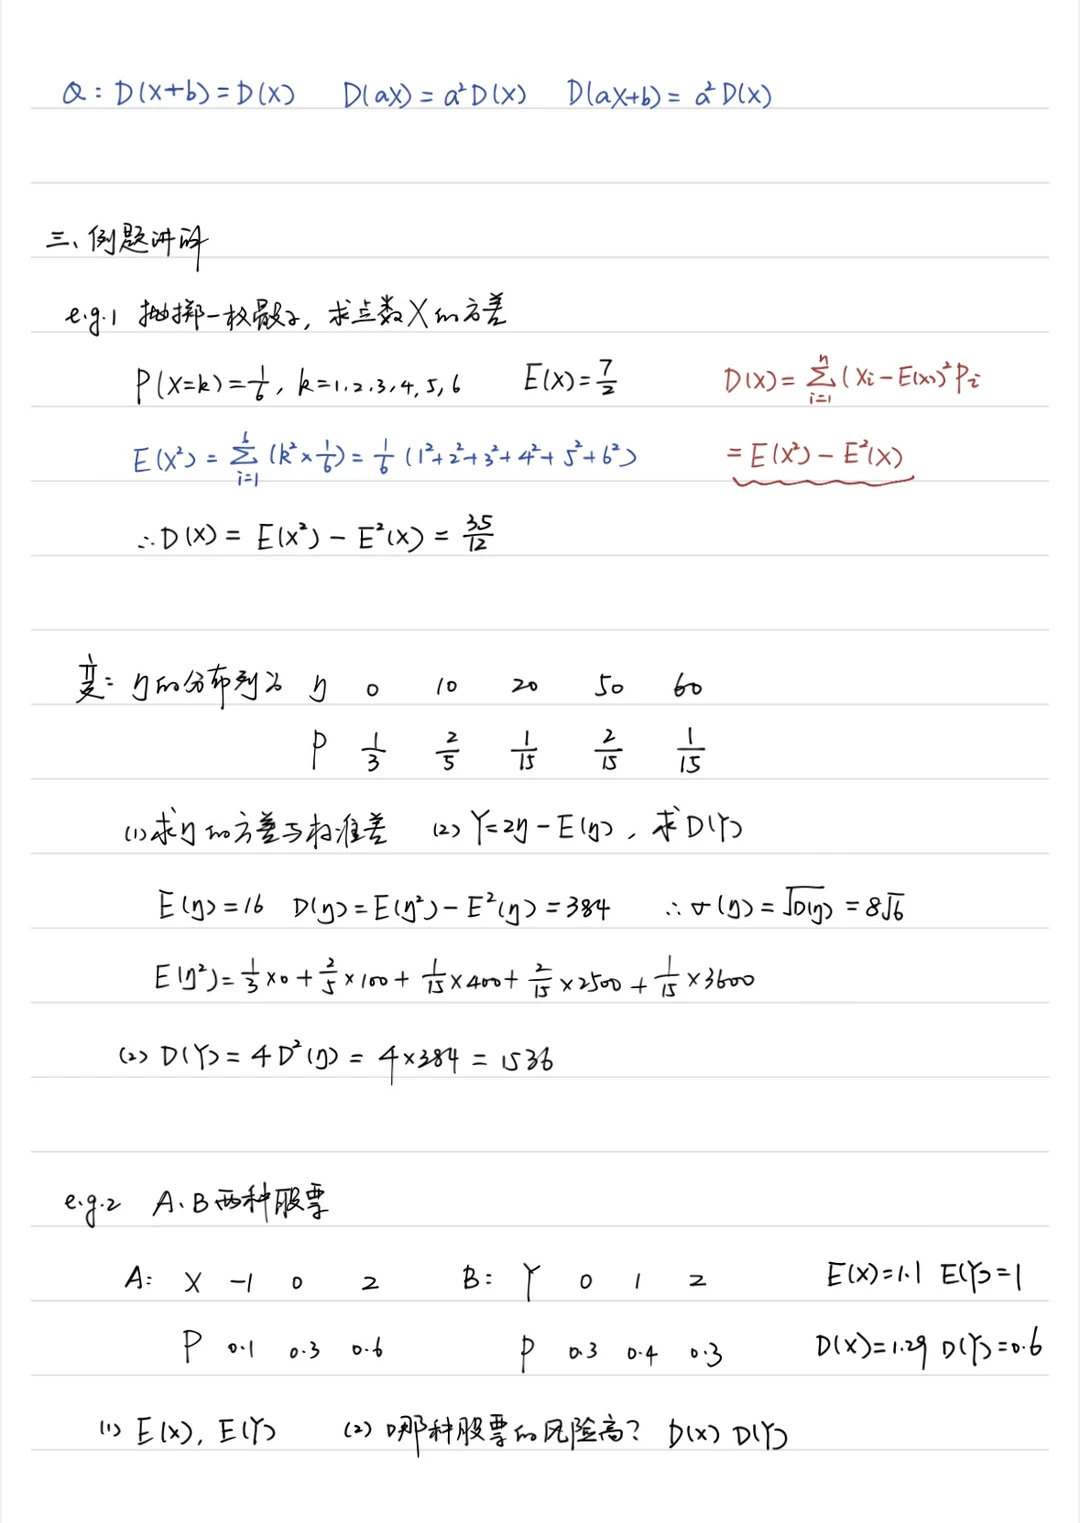 Q: D(X+b)=D(X)  D(aX)=a²D(X)  D(aX+b)=a²D(X)
三、例题讲评
e.g.1 抛掷一枚骰子，求点数X的方差
P(X=k)=1/6, k=1.2.3.4.5.6  E(X)=7/2  D(X)=∑_{i=1}^{n}(Xi-E(X))²Pi
E(X²)=∑_{i=1}^{6}(k²×1/6)=1/6(1²+2²+3²+4²+5²+6²)  =E(X²)-E²(X)
∴D(X)=E(X²)-E²(X)=35/12
变: η的分布列为 η 0 10 20 50 60
P 1/3 2/5 1/15 2/15 1/15
(1)求η的方差与标准差  (2) Y=2η-E(η), 求D(Y)
E(η)=16  D(η)=E(η²)-E²(η)=384  ∴σ(η)=√D(η)=8√6
E(η²)=1/3×0+2/5×100+1/15×400+2/15×2500+1/15×3600
(2) D(Y)=4D²(η)=4×384=1536
e.g.2 A、B两种股票
A: X -1 0 2  B: Y 0 1 2  E(X)=1.1 E(Y)=1
P 0.1 0.3 0.6  P 0.3 0.4 0.3  D(X)=1.29 D(Y)=0.6
(1) E(X), E(Y)  (2) 哪种股票的风险高? D(X) D(Y)